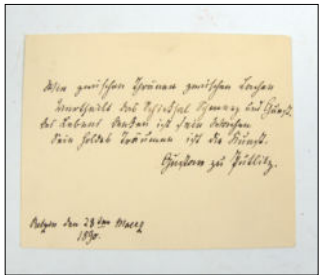 zwischen Thränen zwischen Lachen
das Schicksal Schmerz und Gunst.
des Lebens ist sein
Sein holdes Träumen ist die Kunst.
Gustav zu Putlitz.
Retzin den 28ten Maerz
1890.